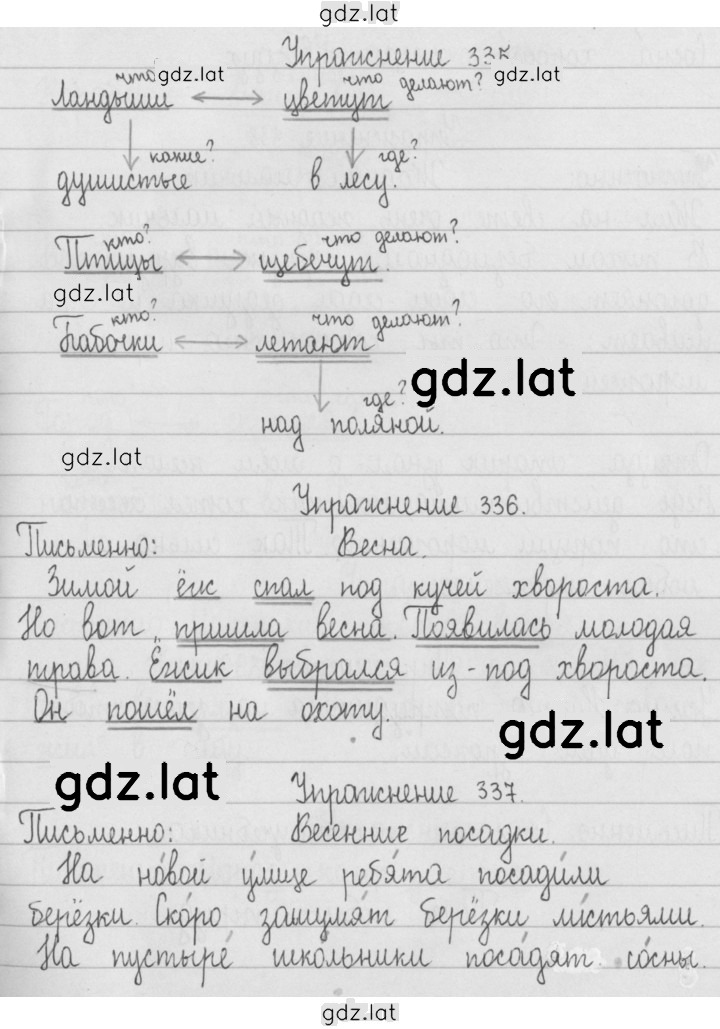 gdz.lat
Упражнение 335
что? gdz.lat что делают? gdz.lat
Ландыши цветут
какие? где?
душистые в лесу.
кто? что делают?
Птицы щебечут.
gdz.lat
кто? что делают?
Бабочки летают
gdz.lat
где?
над поляной.
gdz.lat
Упражнение 336.
Письменно: Весна.
Зимой ёж спал под кучей хвороста.
Но вот пришла весна. Появилась молодая
трава. Ёжик выбрался из-под хвороста.
Он пошёл на охоту.
gdz.lat
gdz.lat
Упражнение 337.
Письменно: Весенние посадки.
На но́вой у́лице ребя́та посади́ли
берёзки. Ско́ро зашумя́т берёзки ли́стьями.
На пустыре́ шко́льники поса́дят со́сны.
gdz.lat